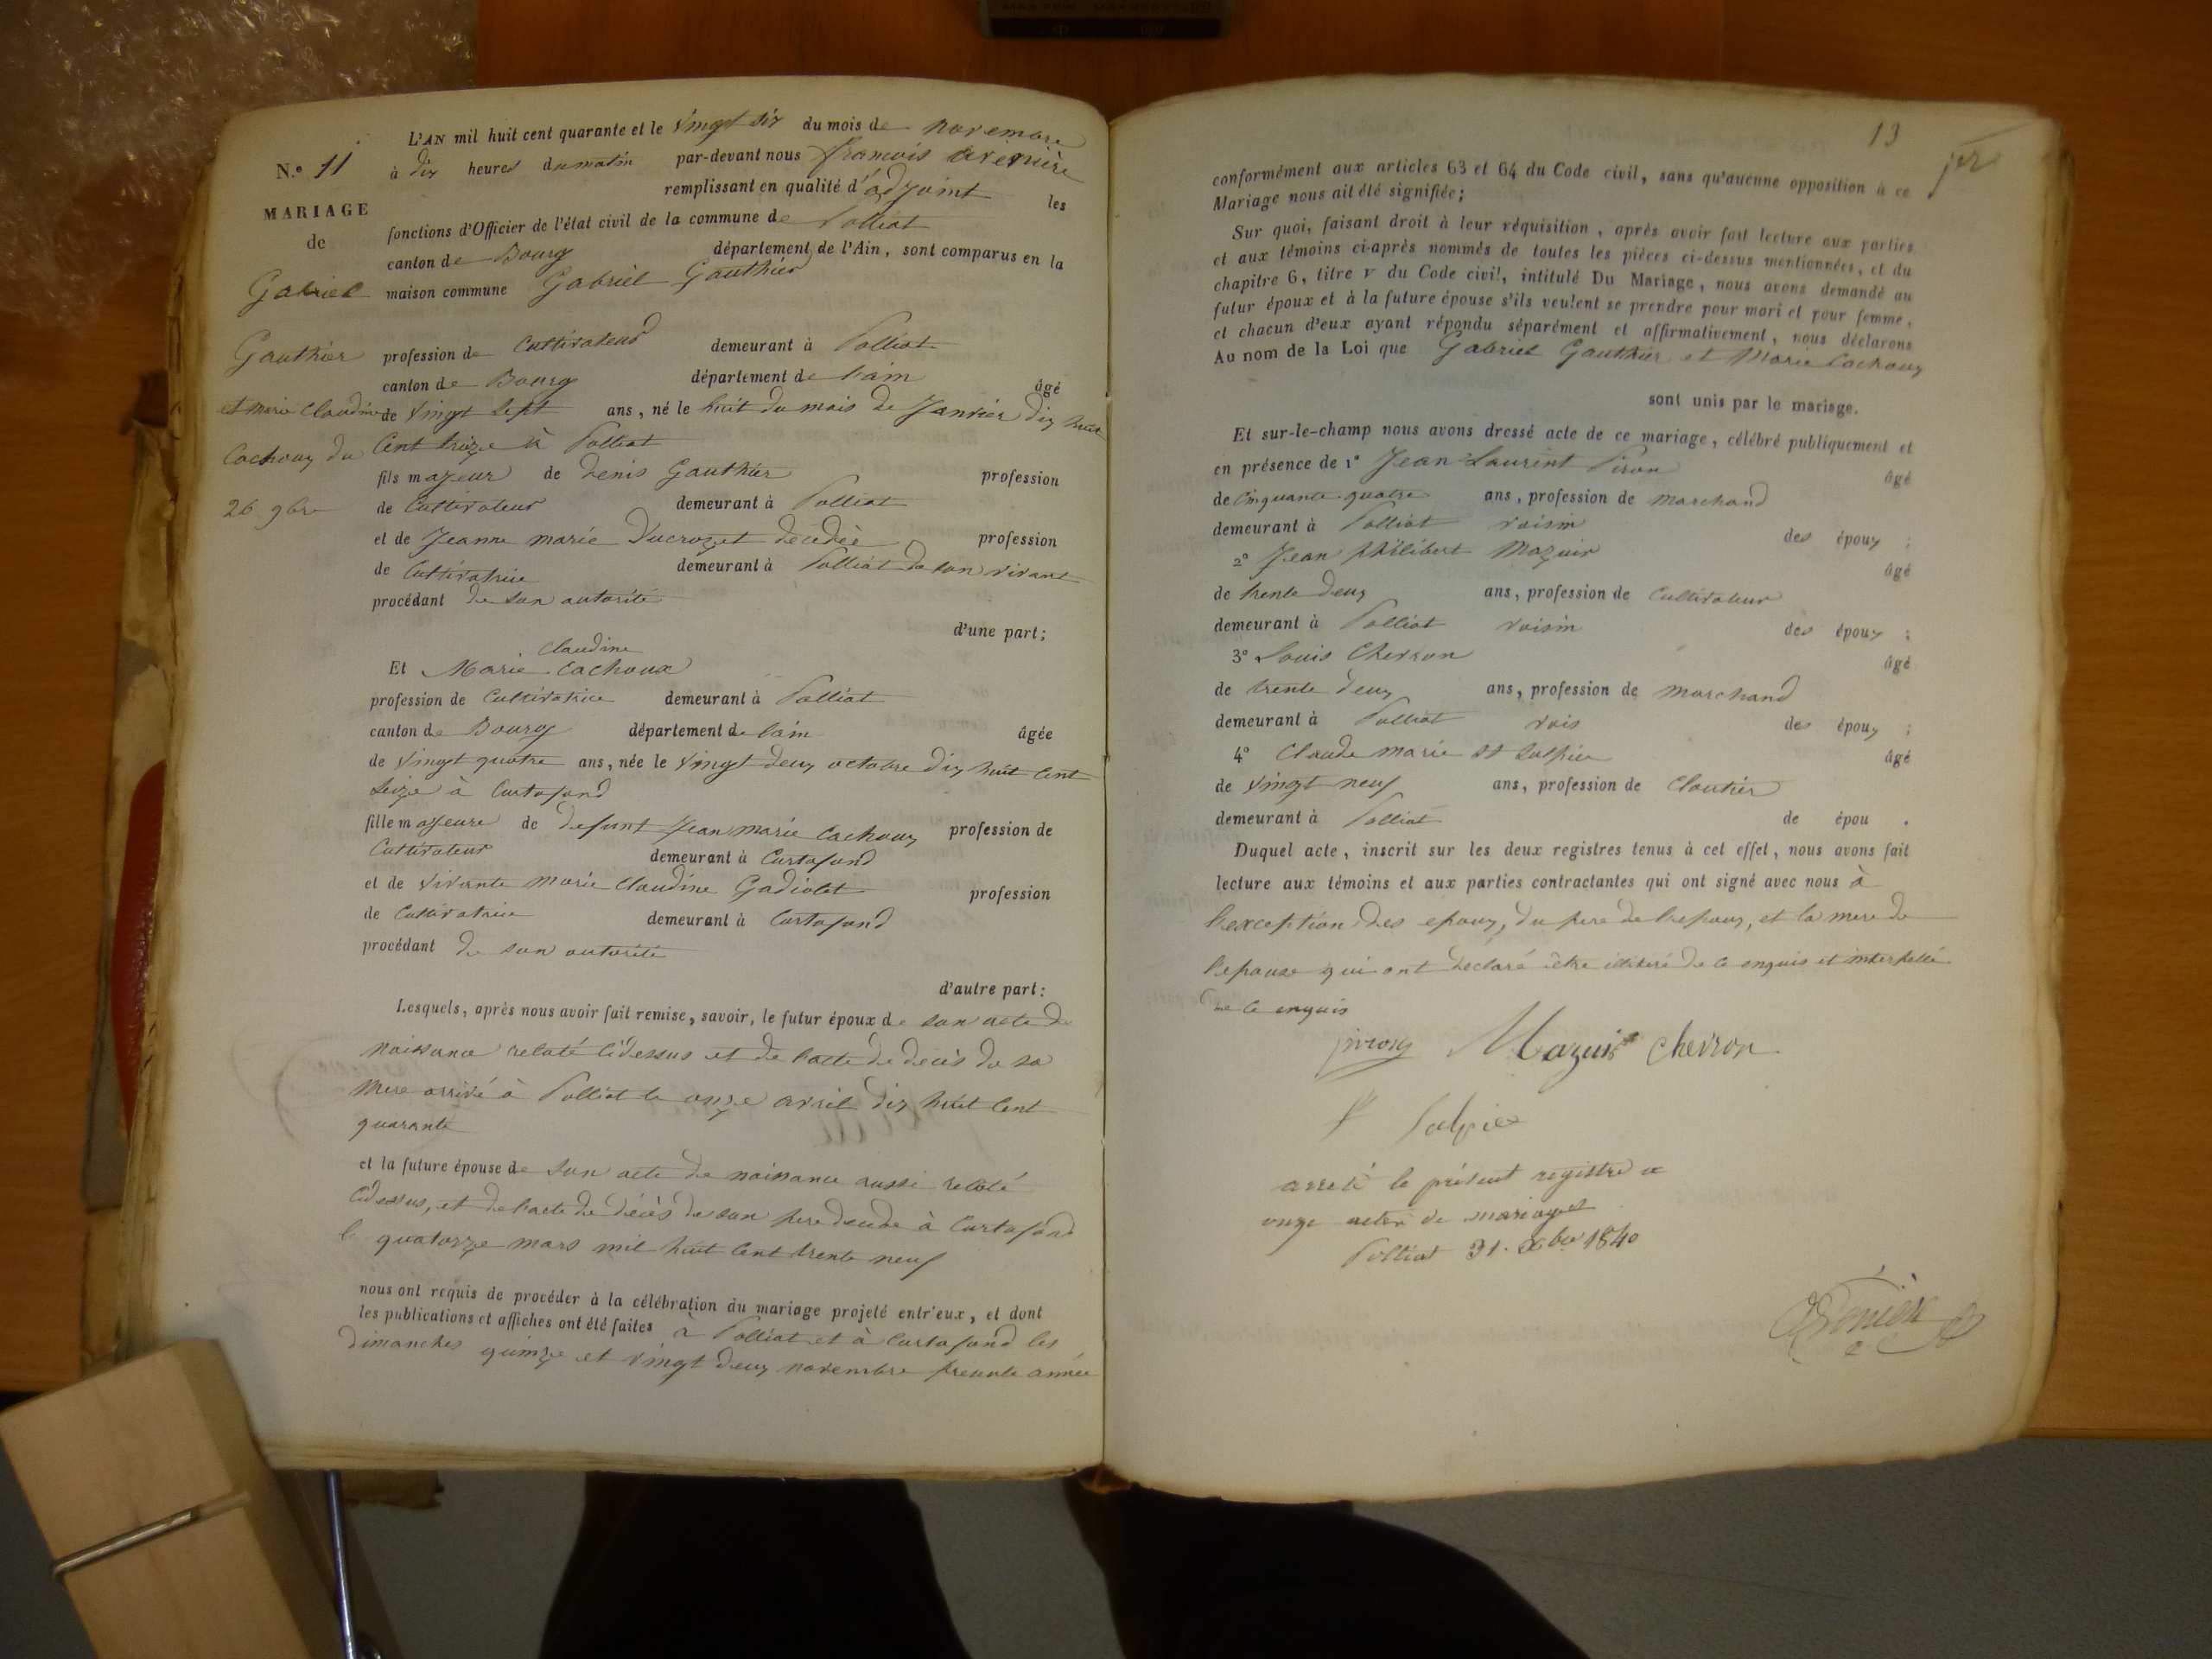 N.° 11
MARIAGE
de
Gabriel
Gauthier
et marie Claudine
Cachoux du
26 9bre
L'AN mil huit cent quarante et le vingt six du mois de novembre
à dix heures du matin par-devant nous françois
remplissant en qualité d'adjoint les
fonctions d'Officier de l'état civil de la commune de Polliat
canton de Bourg département de l'Ain, sont comparus en la
maison commune Gabriel Gauthier
profession de Cultivateur demeurant à Polliat
canton de Bourg département de l'ain âgé
de vingt sept ans, né le huit du mois de Janvier dix huit
Cent treize à Polliat
fils majeur de Denis Gauthier profession
de Cultivateur demeurant à Polliat
et de Jeanne marie Ducrozet décédée profession
de Cultivatrice demeurant à Polliat de son vivant
procédant de son autorité
d'une part;
Claudine
Et Marie Cachoux
profession de Cultivatrice demeurant à Polliat
canton de Bourg département de l'ain âgée
de vingt quatre ans, née le vingt deux octobre dix huit Cent
Seize à Curtafond
fille majeure de defunt Jean marie Cachoux profession de
Cultivateur demeurant à Curtafond
et de vivante marie Claudine Gadiolet profession
de Cultivatrice demeurant à Curtafond
procédant de son autorité
d'autre part:
Lesquels, après nous avoir fait remise, savoir, le futur époux de son acte de
naissance relaté cidessus et de l'acte de décès de sa
mere arrivé à Polliat le onze avril dix huit Cent
quarante
et la future épouse de son acte de naissance aussi relaté
cidessus, et de l'acte de décès de son pere décédé à Curtafond
le quatorze mars mil huit Cent trente neuf
nous ont requis de procéder à la célébration du mariage projeté entr'eux, et dont
les publications et affiches ont été faites à Polliat et à Curtafond les
dimanches quinze et vingt deux novembre presente année
13
conformément aux articles 63 et 64 du Code civil, sans qu'aucune opposition à ce
Mariage nous ait été signifiée;
Sur quoi, faisant droit à leur réquisition, après avoir fait lecture aux parties
et aux témoins ci-après nommés de toutes les pièces ci-dessus mentionnées, et du
chapitre 6, titre v du Code civil, intitulé Du Mariage, nous avons demandé au
futur époux et à la future épouse s'ils veulent se prendre pour mari et pour femme,
et chacun d'eux ayant répondu séparément et affirmativement, nous déclarons
Au nom de la Loi que Gabriel Gauthier et Marie Cachoux
sont unis par le mariage.
Et sur-le-champ nous avons dressé acte de ce mariage, célébré publiquement et
en présence de 1° Jean Laurent Piron âgé
de Cinquante quatre ans, profession de marchand
demeurant à Polliat voisin des époux ;
2° Jean Philibert Mazuir âgé
de trente deux ans, profession de Cultivateur
demeurant à Polliat voisin des époux ;
3° Louis Chevron âgé
de trente deux ans, profession de marchand
demeurant à Polliat vois des époux ;
4° Claude marie St Sulpice âgé
de vingt neuf ans, profession de Cloutier
demeurant à Polliat de épou .
Duquel acte, inscrit sur les deux registres tenus à cet effet, nous avons fait
lecture aux témoins et aux parties contractantes qui ont signé avec nous à
l'exception des epoux, du pere de l'epoux, et la mere de
l'epouse qui ont déclaré être illitéré de ce enquis et interpellé
de ce enquis
piron Mazuir Chevron
St Sulpice
arreté le présent registre a
onze actes de mariages
Polliat 31. Xbre 1840